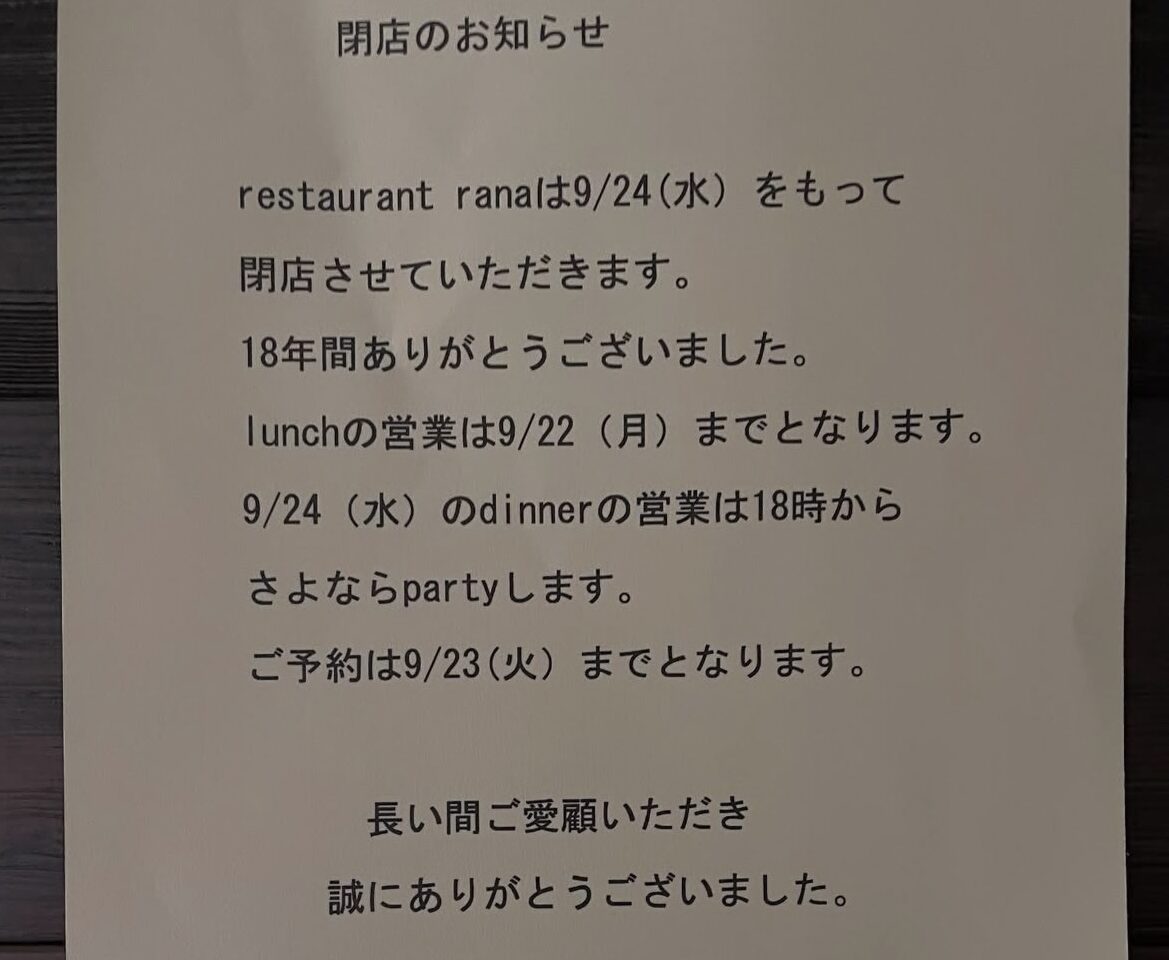 閉店のお知らせ
restaurant ranaは9/24(水）をもって
閉店させていただきます。
18年間ありがとうございました。
lunchの営業は9/22（月）までとなります。
9/24（水）のdinnerの営業は18時から
さよならpartyします。
ご予約は9/23(火）までとなります。
長い間ご愛顧いただき
誠にありがとうございました。